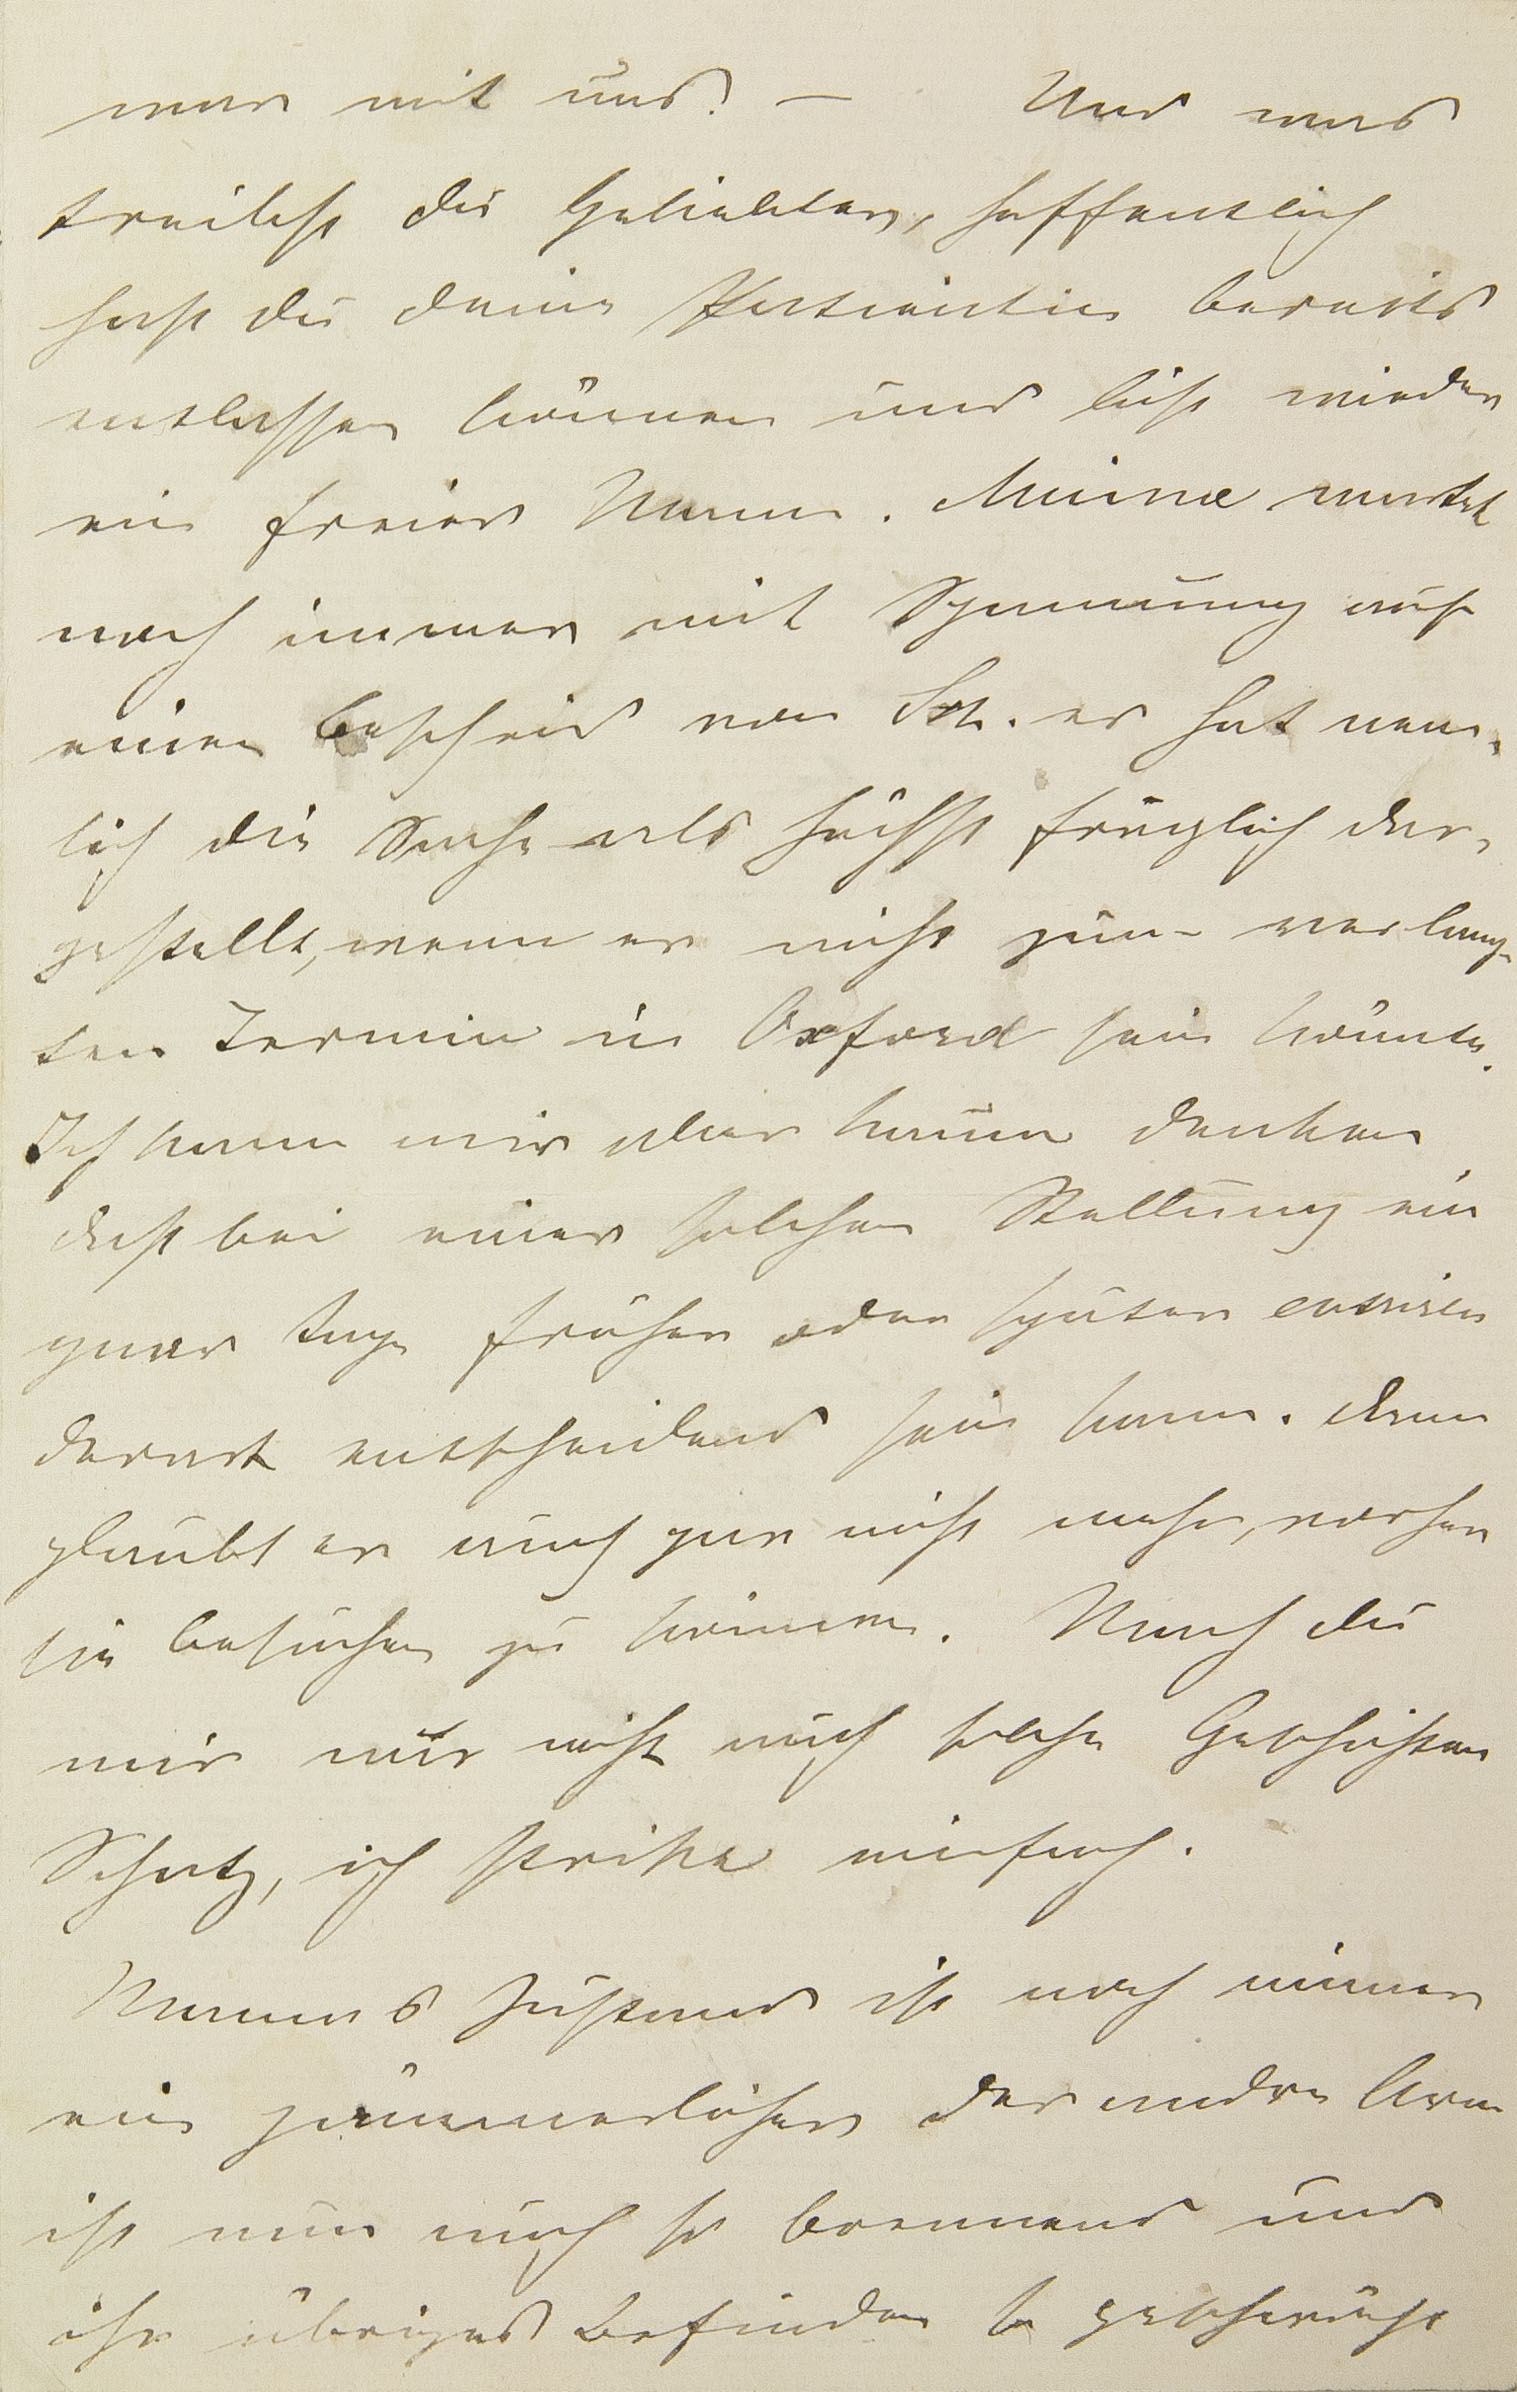 man mit uns? — Und was
treibst du Geliebter, hoffentlich
hast du deine Patientin bereits
entlassen können und bist wieder
ein freier Mann. Minna wartet
noch immer mit Spannung auf
einen Bescheid von Sch. er hat nem-
lich die Sache als höchst fraglich dar-
gestellt, wenn er nicht zum verlang-
ten Termin in Oxford sein könnte.
Ich kann mir aber kaum denken
daß bei einer solchen Stellung ein
paar Tage früher oder später
derart entscheidend sein kann. dann
glaubt er auch gar nicht mehr, vorher
sie besuchen zu können. Mach du
mir nur nicht auch solche Geschichten
Schatz, ich strike einfach.
Mamas Zustand ist noch immer
ein jämmerlicher der andre Arm
ist nun auch so brennend und
ihr übriges Befinden so geschwächt